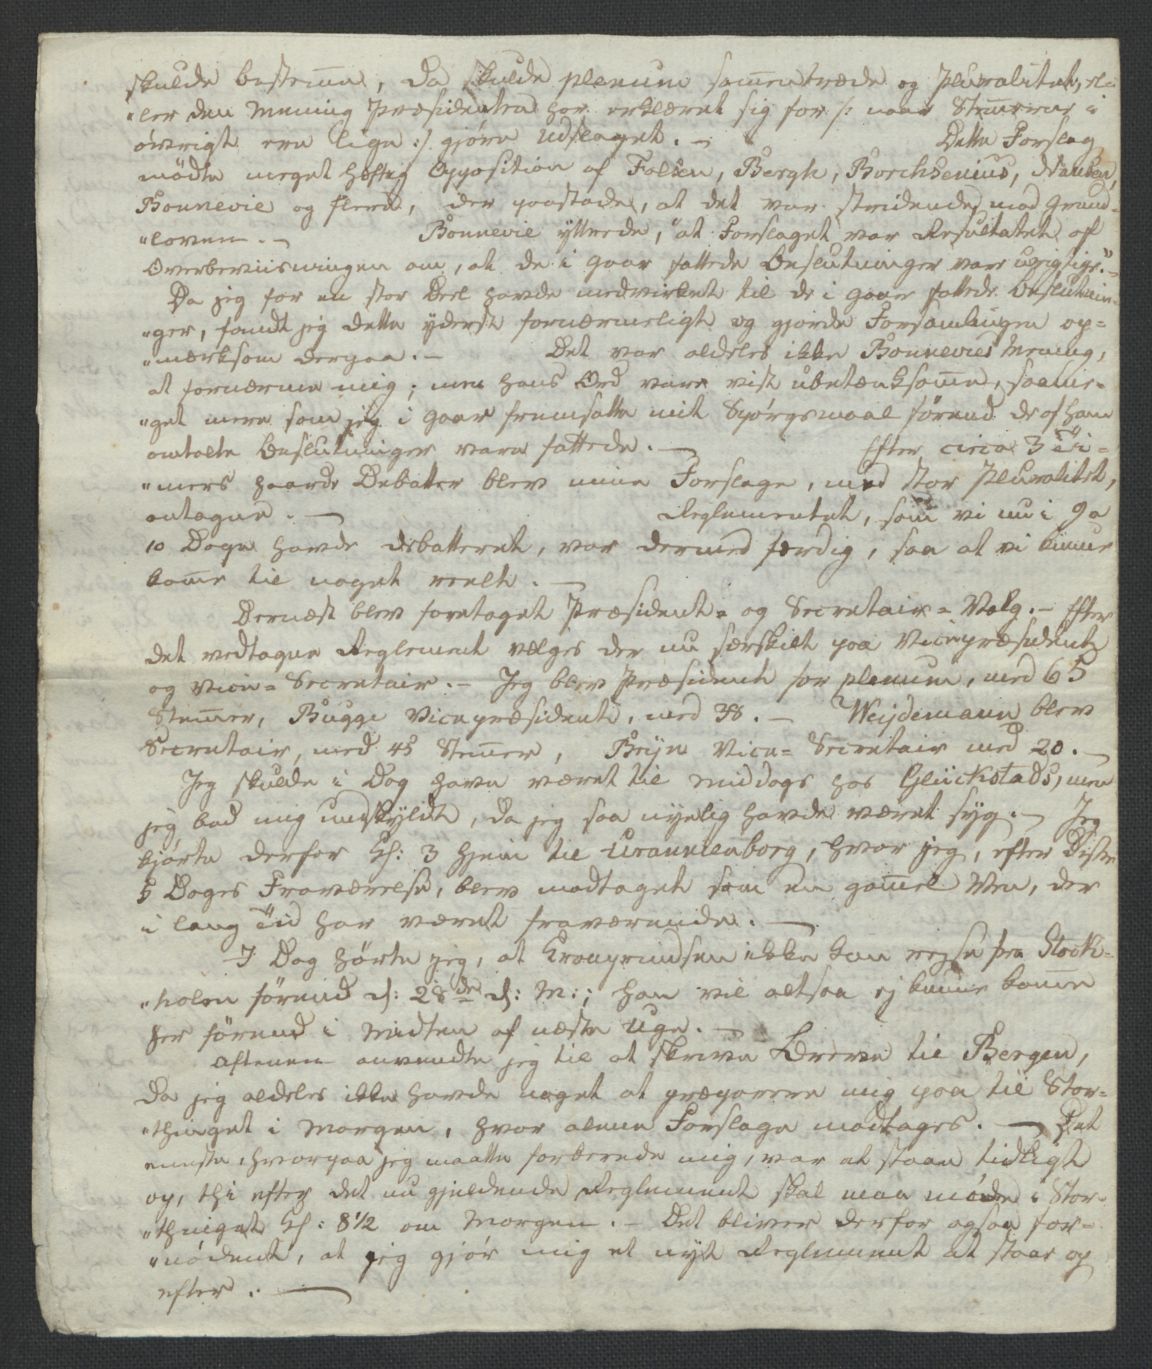 skulde bestemme, da skulde plenum sammentræde og Pluralitet, el=
"ler den Mening Præsidenten har erklæret sig for /: naar Stemmerne i
øvrigt ere lige :/ gjøre Udslaget. — Dette Forslag
mødte meget heftig Opposition af Falsen, Bergh, Borchsenius,
Bonnevie og flere, der paastode, at det var stridende mod Grund=
"loven. — Bonnevie yttrede, "at Forslaget var Resultatet af
Overbeviisningen om, at de i gaar fattede Beslutninger vare urigtige." —
Da jeg for en stor Deel havde medvirket til de i gaar fattede Beslutnin=
"ger, fandt jeg dette yderst fornærmeligt og gjorde Forsamlingen op=
"mærksom derpaa. — Det var aldeles ikke Bonnevies Mening,
at fornærme mig; men hans Ord vare vist ubetænksomme, saame=
"get mere som jeg i gaar fremsatte mit Spørgsmaal førend de af ham
omtalte Beslutninger vare fattede. — Efter circa 3 Ti=
"mers haarde Debatter blev mine Forslage, med stor Pluralitet,
antagne. — Reglementet, som vi nu i 9 a
10 Dage havde debatteret, var dermed færdig, saa at vi kunne
komme til noget reelt. —
Dernæst blev foretaget Præsident= og Secretair=Valg. — Efter
det vedtagne Reglement vælges der nu særskilt paa Vicepræsident
og Vice=Secretair. — Jeg blev Præsident for plenum, med 65
Stemmer, Bugge Vicepræsident, med 38. — Weydemann blev
Secretair, med 45 Stemmer, Bryn Vice=Secretair med 20. —
Jeg skulde i Dag have været til Middags hos Glückstads, men
jeg bad mig undskyldt, da jeg saa nyelig havde været syg. — Jeg
kjørte derfor Kl: 3 hjem til Uranienborg, hvor jeg, efter disse
5 Dages Fraværelse, blev modtaget som en gammel Ven, der
i lang Tid har været fraværende. —
I Dag hørte jeg, at Cronprindsen ikke kan rejse fra Stock=
"holm førend d: 28de d: M:; han vil altsaa ej kunne komme
her førend i Midten af næste Uge. —
Aftenen anvendte jeg til at skrive Breve til Bergen,
da jeg aldeles ikke havde noget at præparere mig paa til Stor=
"thinget i Morgen, hvor alene Forslage modtages. — Det
eneste, hvorpaa jeg maatte forberede mig, var at staae tidligt
op, thi efter det nu gjeldende Reglement skal man møde i Stor=
"thinget Kl: 8 1/2 om Morgen. — Det bliver derfor ogsaa for=
"nødent, at jeg gjør mig et nyt Reglement at staae op
efter. —